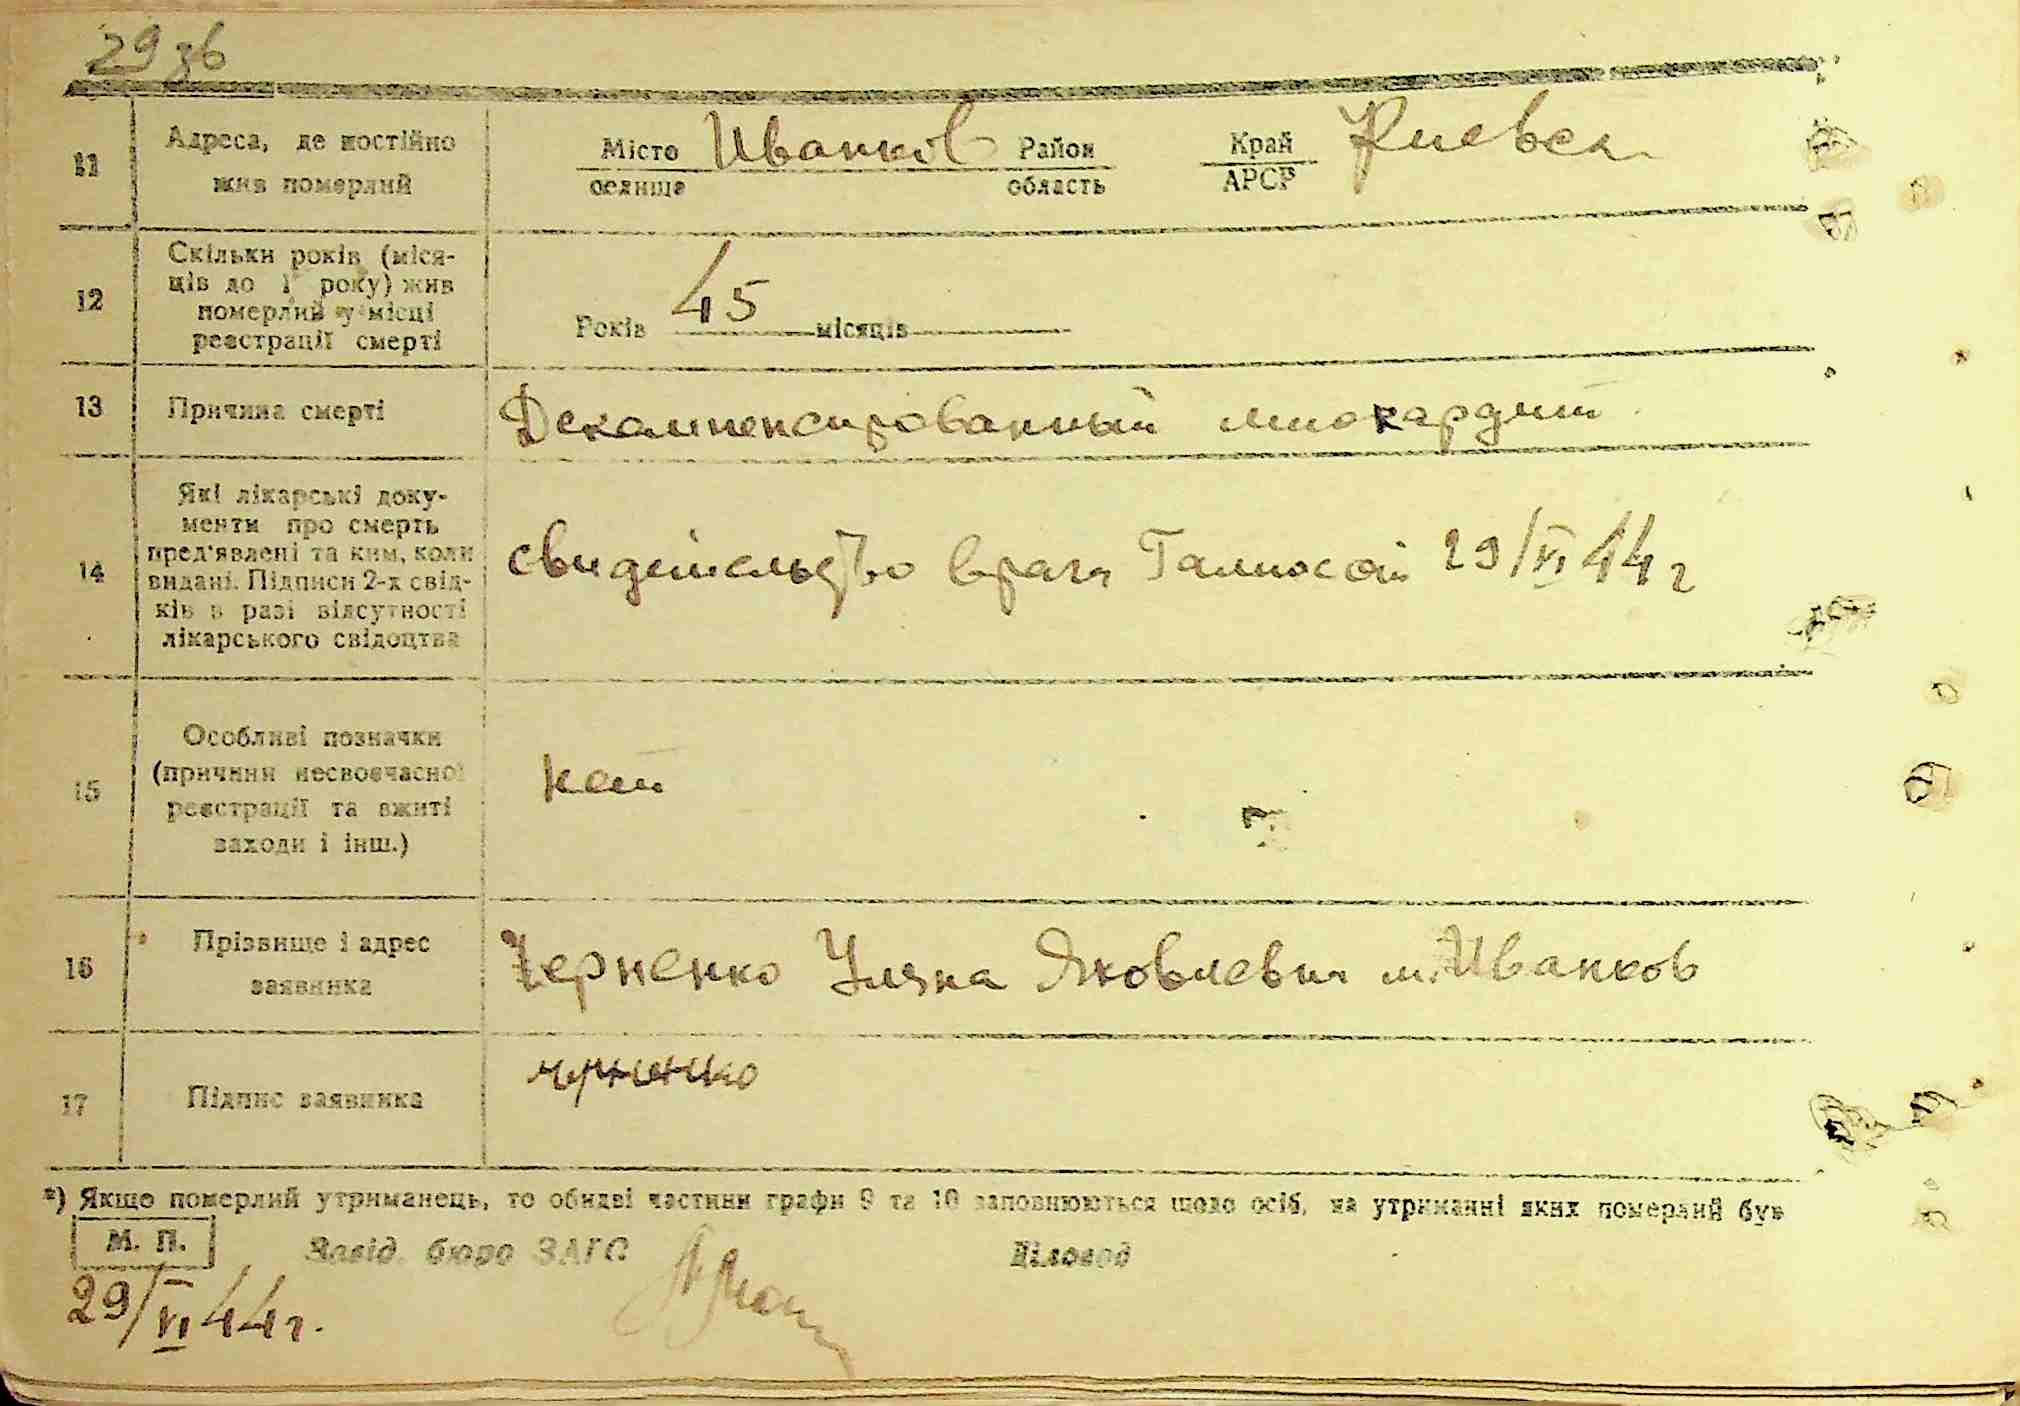 29 зв
11 Адреса, де постійно жив померлий
Місто Иванков Район Край Киевск.
селище область АРСР
12 Скільки років (міся-
ців до 1 року) жив
померлий у місці
реєстрації смерті
Років 45 місяців
13 Причина смерті Декампенсированный миокардит
14 Які лікарські доку-
менти про смерть
пред'явлені та ким, коли
видані. Підписи 2-х свід-
ків в разі відсутності
лікарського свідоцтва
свидетельство врача 29/VI 44 г
15 Особливі позначки
(причини несвоєчасної
реєстрації та вжиті
заходи і інш.)
нет
16 Прізвище і адрес
заявника
Черненко Уляна Яковлевна м. Иванков
17 Підпис заявника черненко
*) Якщо померлий утриманець, то обидві частини графи 9 та 10 заповнюються щодо осіб, на утриманні яких померлий був
М. П. Завід. бюро ЗАГС Діловод
29/VI 44 г.